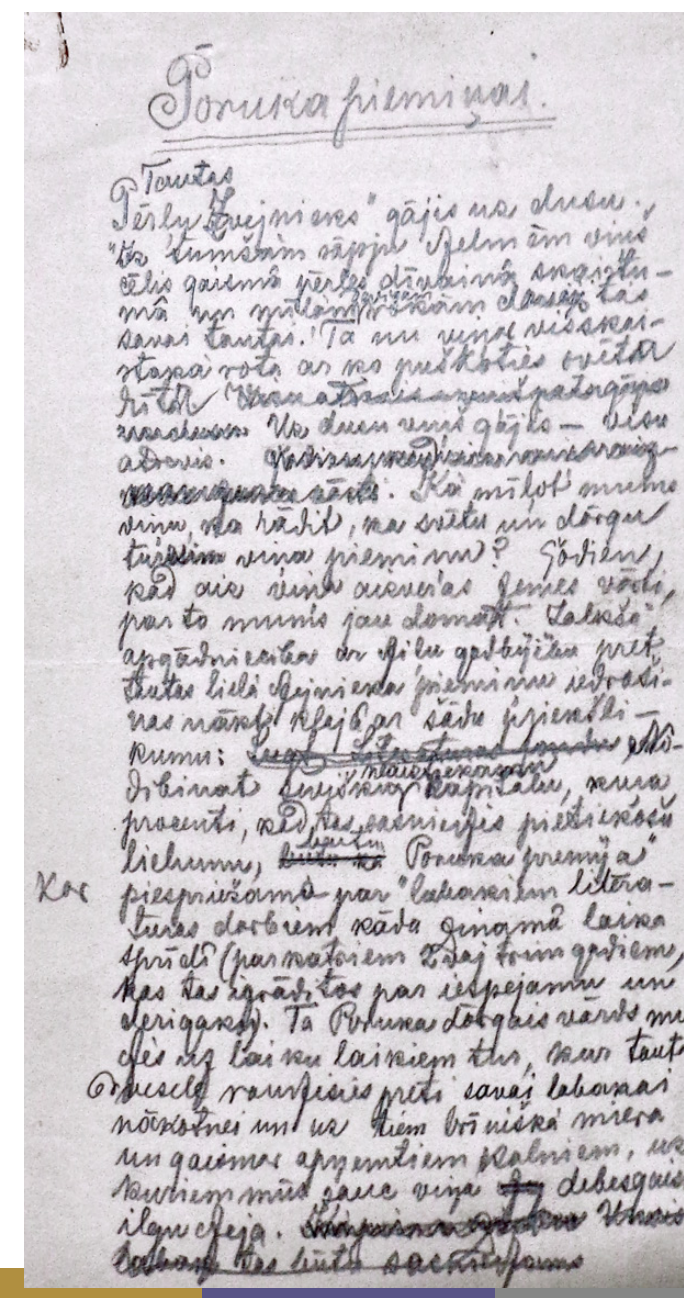 Poruka piemiņai.
Tautas
"Pērļu Zvejnieks" gājis uz dusu.
Iz tumšām sāpju dzelmēm viņš
cēlis gaismā pērles dīvainā skaistu-
mā un mīlām rokām tās
savai tautai. Tā nu viņas visskai-
stakā rota ar ko puškoties svētā
rītā
Uz dusu viņš gājis — visu
atdevis. Kā mīlot mums
viņu, kā rādīt, ka svētu un dārgu
viņa piemiņu? Šodien,
kad aiz viņa aizveras zemes vārti,
par to mums jau domāt. Zalkša
apgādniecība ar dziļu godbijību pret
tautas lielā dzejnieka piemiņu iedroši-
nas nākt klajā ar šādu priekšli-
kumu: No-
dibināt kapitālu, kura
procenti, kad tas sasniedzis pietiekošu
lielumu, Poruka premija"
Kar piespriežama par labakiem litera-
turas darbiem kāda zinamā laika
sprīdī (par katriem 2 vaj trim gadiem,
kas tas izrādītos par iespejamu un
derigaku). Ta Poruka dārgais vārds mu
dzēs uz laiku laikiem tur, kur tauta
dvesele raudzīsies preti savai labakai
nākotnei un uz tiem brīnišķā miera
un gaismas apņemtiem kalniem, uz
kuriem mūs sauc viņa debesgais
ilgu dzeja.